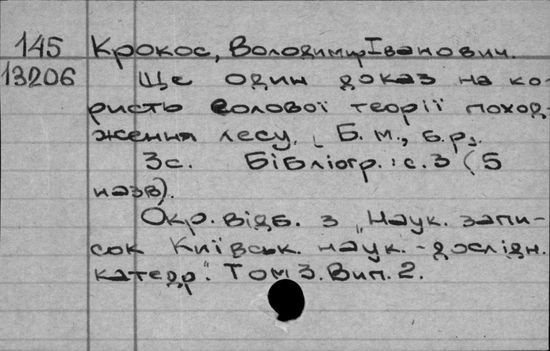 145 Крокос, Володимир Іванович.
13206 Ще один доказ на ко-
ристь еолової теорії поход-
ження лесу. [Б.м., б.р.].
3с. Бібліогр.: с.3 (5
назв).
Окр. відб. з "Наук. запи-
сок Київськ. наук.-дослідн.
катедр". Том 3. Вип. 2.